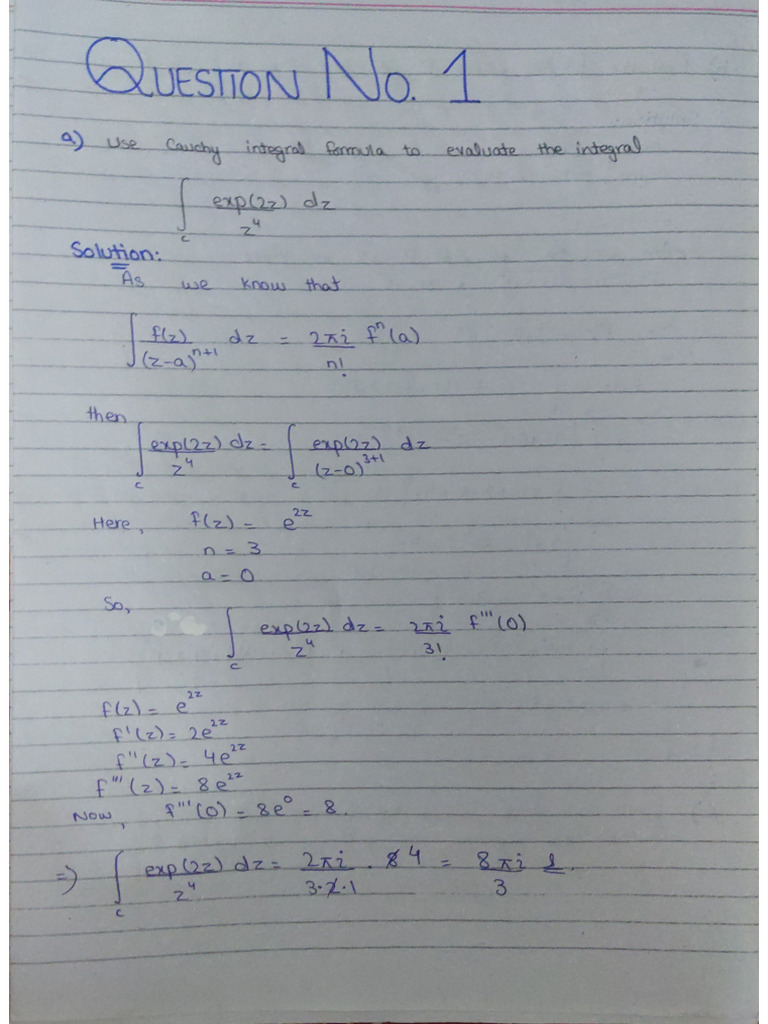 QUESTION No. 1
a) Use Cauchy integral formula to evaluate the integral
∫_c exp(2z)/z⁴ dz
Solution:
As we know that
∫ f(z)/(z-a)ⁿ⁺¹ dz = 2πi/n! fⁿ(a)
then
∫_c exp(2z)/z⁴ dz = ∫_c exp(2z)/(z-0)³⁺¹ dz
Here, f(z) = e²ᶻ
n = 3
a = 0
So,
∫_c exp(2z)/z⁴ dz = 2πi/3! f'''(0)
f(z) = e²ᶻ
f'(z) = 2e²ᶻ
f''(z) = 4e²ᶻ
f'''(z) = 8e²ᶻ
Now, f'''(0) = 8e⁰ = 8.
=) ∫_c exp(2z)/z⁴ dz = 2πi/3·2·1 . 8 4 = 8πi/3